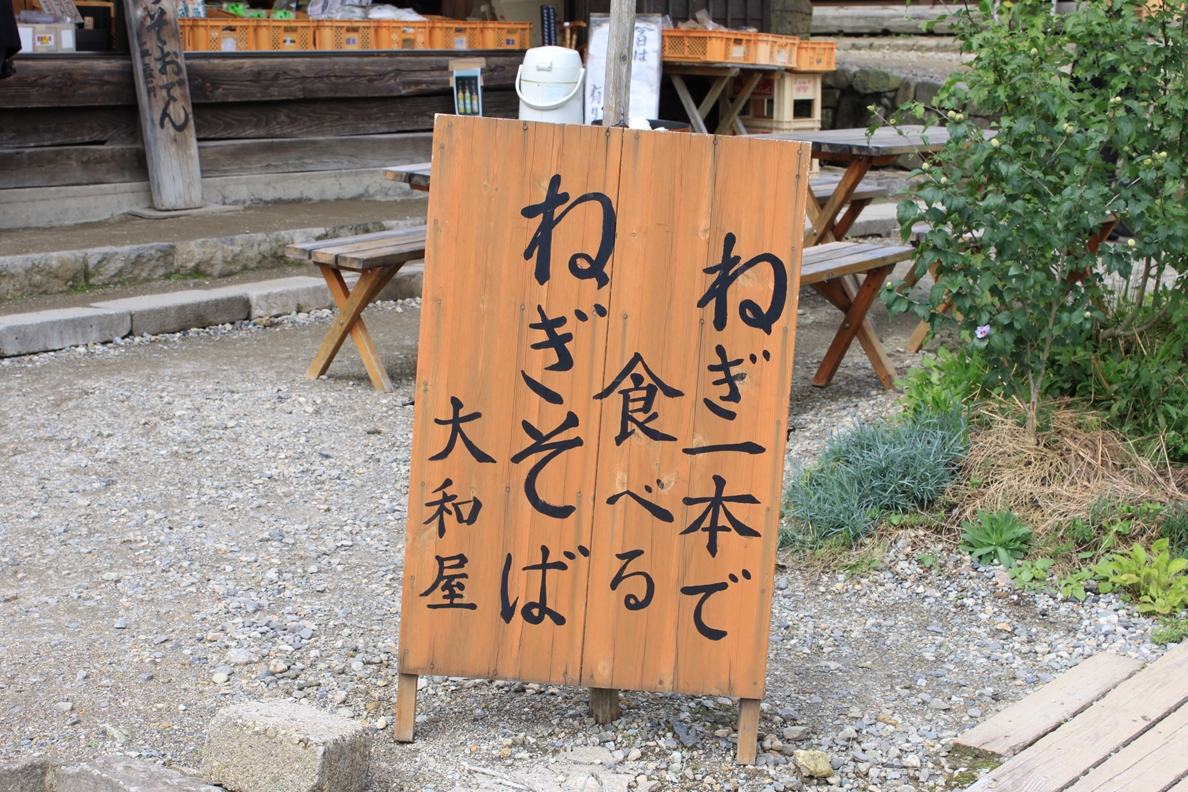 ねぎ一本で
食べる
ねぎそば
大和屋
そおでん